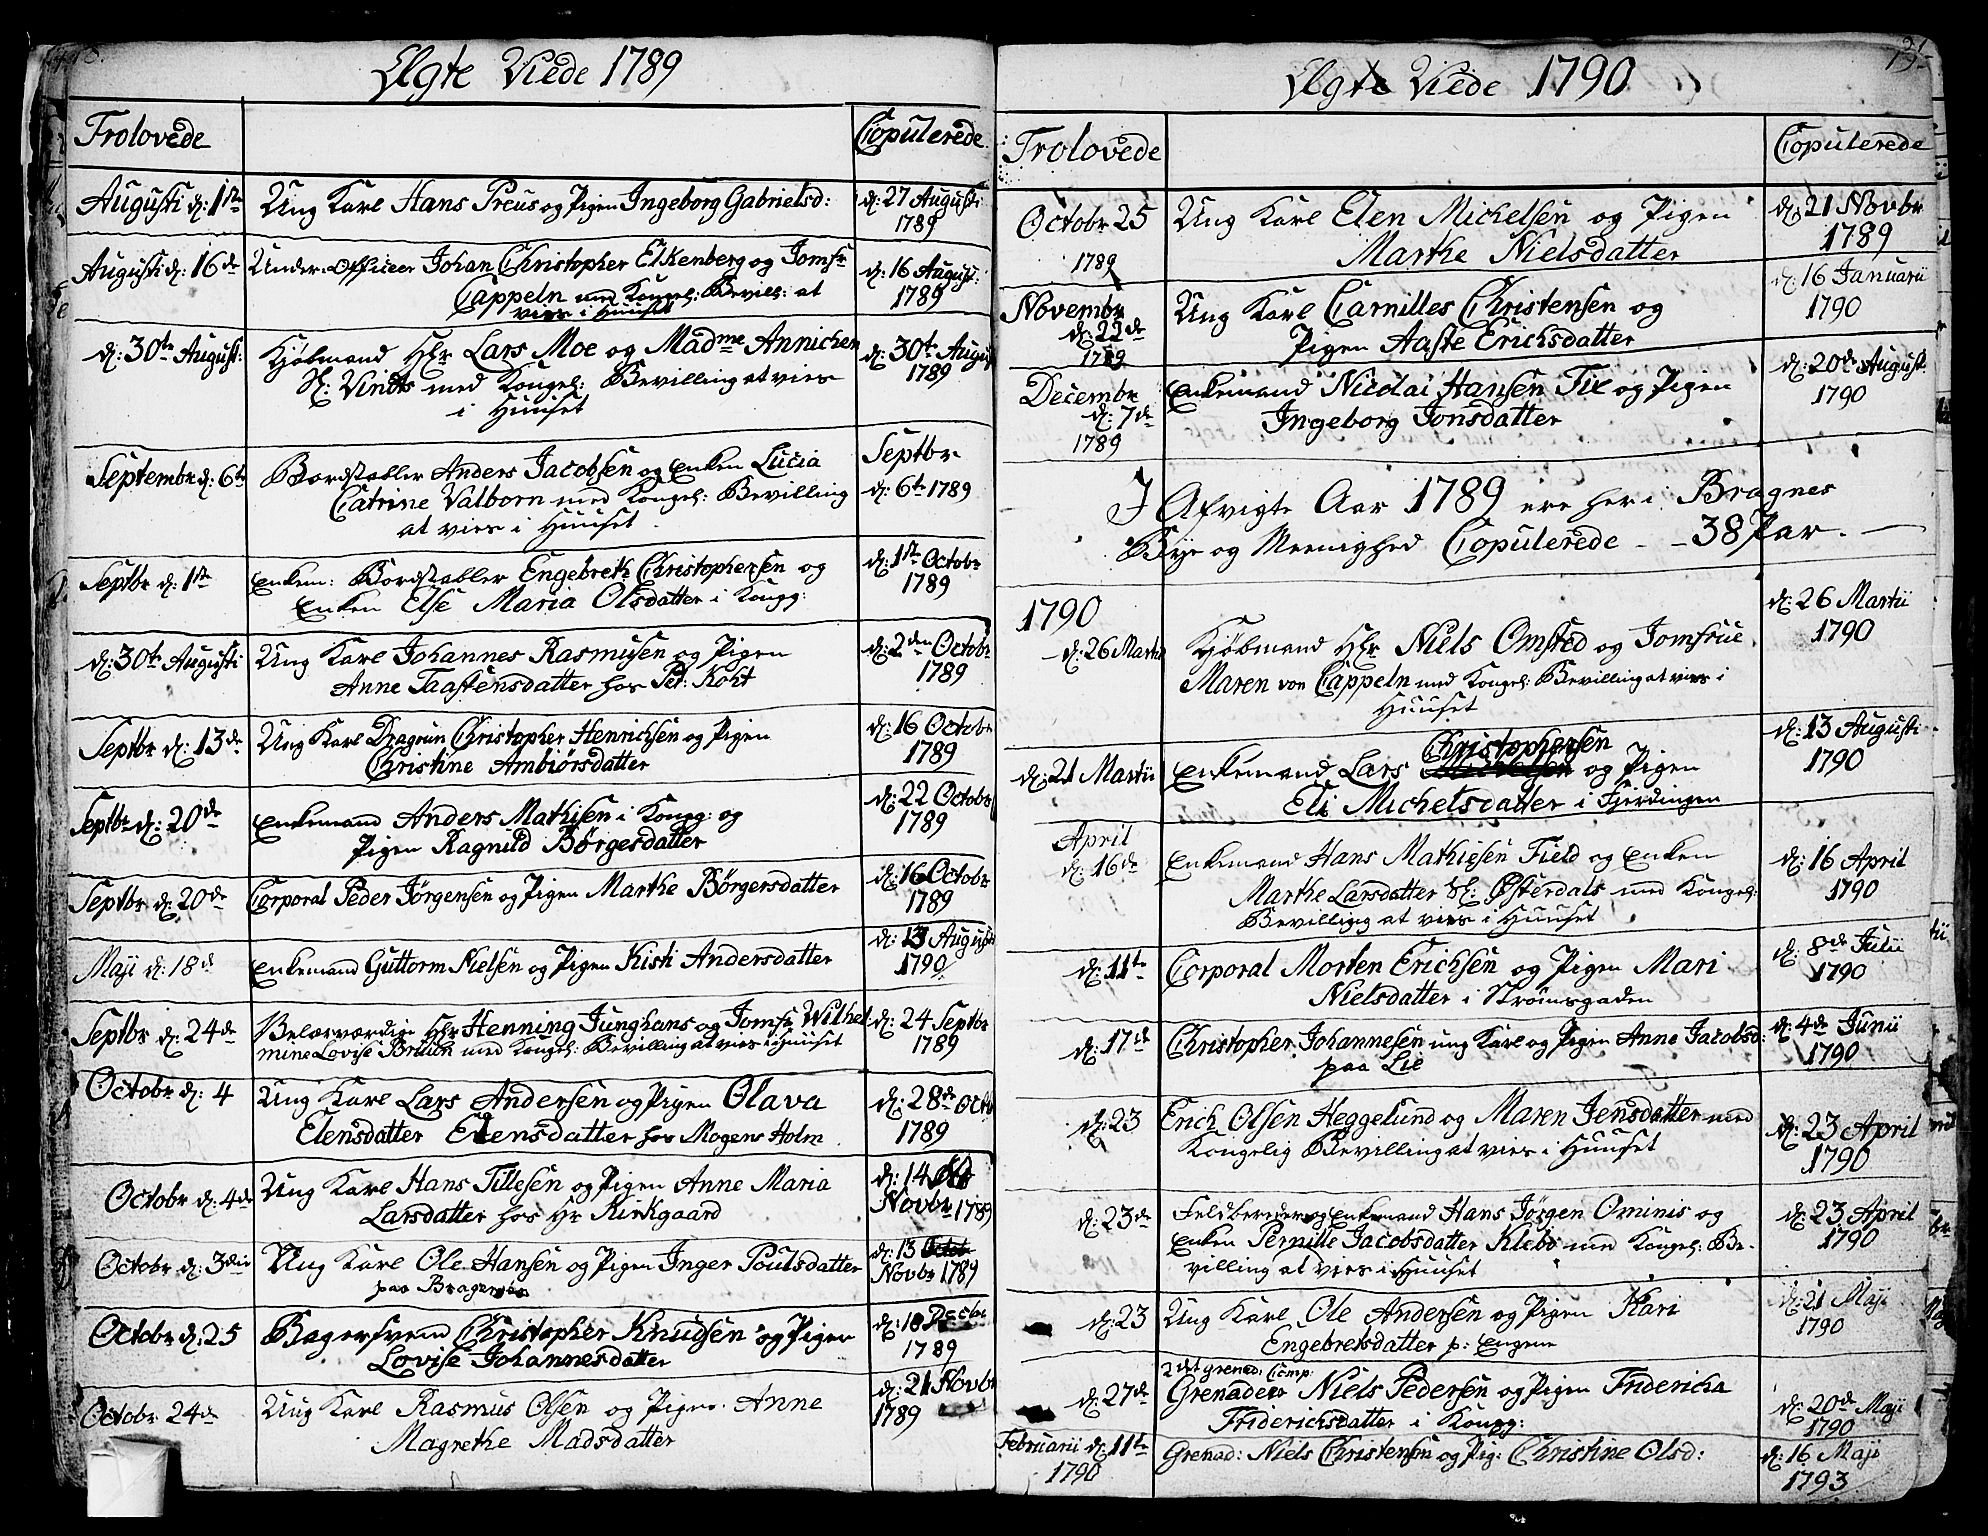 Ægte Viede 1789
Trolovede
Copulerede
Augusti d: 1ste
Ung Karl Hans Preus og Pigen Ingeborg Gabrielsd:
d: 27 Augusti
1789
Augusti d: 16de
Under-Officeer Johan Christopher Elkenberg og Jomfr
Cappeln med Kongel: Bevill: at
vies i Huuset
d: 16 August:
1789
d: 30te August:
Kjøbmand Hr Lars Moe og Madme Annichen
Sl: Vindts med Kongel: Bevilling at vies
i Huuset
d: 30te August
1789
Septembr d: 6te
Bordstabler Anders Jacobsen og Enken Lucia
Catrine Valborn med Kongel: Bevilling
at vies i Huuset
Septbr
d: 6te 1789
Septbr d: 1ste
Enkem: Bordstabler Engebreth Christophersen og
Enken Else Maria Olsdatter i Kongg:
d: 1ste Octobr
1789
d: 30te Augusti
Ung Karl Johannes Rasmusen og Pigen
Anne Taastensdatter hos Ped: Koht
d: 2den Octobr
1789
Septbr d: 13de
Ung Karl Dragun Christopher Henrichsen og Pigen
Christine Ambiørsdatter
d: 16 Octobr
1789
Septbr d: 20de
Enkemand Anders Mathisen i Kongg: og
Pigen Ragnild Børgesdatter
d: 22 Octobr
1789
Septbr d: 20de
Corporal Peder Jørgensen og Pigen Marthe Børgersdatter
d: 16 Octobr
1789
Maji d: 18d
Enkemand Guttorm Nielsen og Pigen Kisti Andersdatter
d: 13 Augusti
1790
Septbr d: 24de
Velærværdige Hr Henning Junghans og Jomfr Wilhel
mine Lovise Bruun med Kongel: Bevilling at vies i Huuset
d: 24 Septbr
1789
Octobr d: 4
Ung Karl Lars Andersen og Pigen Olava
Elensdatter Elensdatter hos Mogens Holm
d: 28de Octb
1789
Octobr d: 4de
Ung Karl Hans Tillesen og Pigen Anne Maria
Larsdatter hos Hr Kirkgaard
d: 14
Novbr 1789
Octobr d: 3die
Ung Karl Ole Hansen og Pigen Inger Poulsdatter
paa Bragernes
d: 13 Octobr
Novbr 1789
Octobr d: 25
Bagersvend Christopher Knudsen og Pigen
Lovise Johannesdatter
d: 18 Decbr
1789
Octobr 24de
Ung Karl Rasmus Olsen og Pigen Anne
Magrethe Madsdatter
d: 21 Novbr
1789
Ægte Viede 1790
Trolovede
Copulerede
Octobr 25
1789
Ung Karl Elen Michelsen og Pigen
Marthe Nielsdatter
d: 21 Novbr
1789
Novembr
d: 22de
1789
Ung Karl Carnilles Christensen og
Pigen Aaste Erichsdatter
d: 16 Januarii
1790
Decembr
d: 7de
1789
Enkemand Nicolai Hansen Fix og Pigen
Ingeborg Jonsdatter
d: 20de August:
1790
I Afvigte Aar 1789 ere her i Bragnes
Bye og Meenighed Copulerede - - 38 Par. -
1790
d: 26 Martii
Kjøbmand Hr Niels Omsted og Jomfrue
Maren von Cappeln med Kongel: Bevilling at vies i
Huuset
d: 26 Martii
1790
d: 21 Martii
Christophersen
Enkemand Lars og Pigen
Eli Michelsdatter i Fjerdingen
d: 13 Augusti
1790
April
d: 16de
Enkemand Hans Mathiesen Field og Enken
Marthe Larsdatter Sl: Østerdals med Kongel:
Bevilling at vies i Huuset
d: 16 April
1790
d: 11te
Corporal Morten Erichsen og Pigen Mari
Nielsdatter i Strømsgaden
d: 8de Julii
1790
d: 17de
Christopher Johannesen ung Karl og Pigen Anne Jacobsd:
paa Lie
d: 4de Junii
1790
d: 23
Erich Olsen Heggelund og Maren Jensdatter med
Kongelig Bevilling at vies i Huuset
d: 23 April
1790
d: 23de
Feldbereder og Enkemand Hans Jørgen Ominis og
Enken Pernille Jacobsdatter Klebo med Kongel: Be-
villing at vies i Huuset
d: 23 April
1790
d: 23
Ung Karl Ole Andersen og Pigen Kari
Engebretsdatter p: Engene
d: 21 Maji
1790
d: 27de
2det Grenad: Comp:
Grenadeer Niels Pedersen og Pigen Fridericha
Friderichsdatter i Kongg:
d: 20de Maji
1790
Februarii d: 11te
1790
Grenad: Niels Christensen og Pig: Christine Olsd:
d: 16 Maji
1793